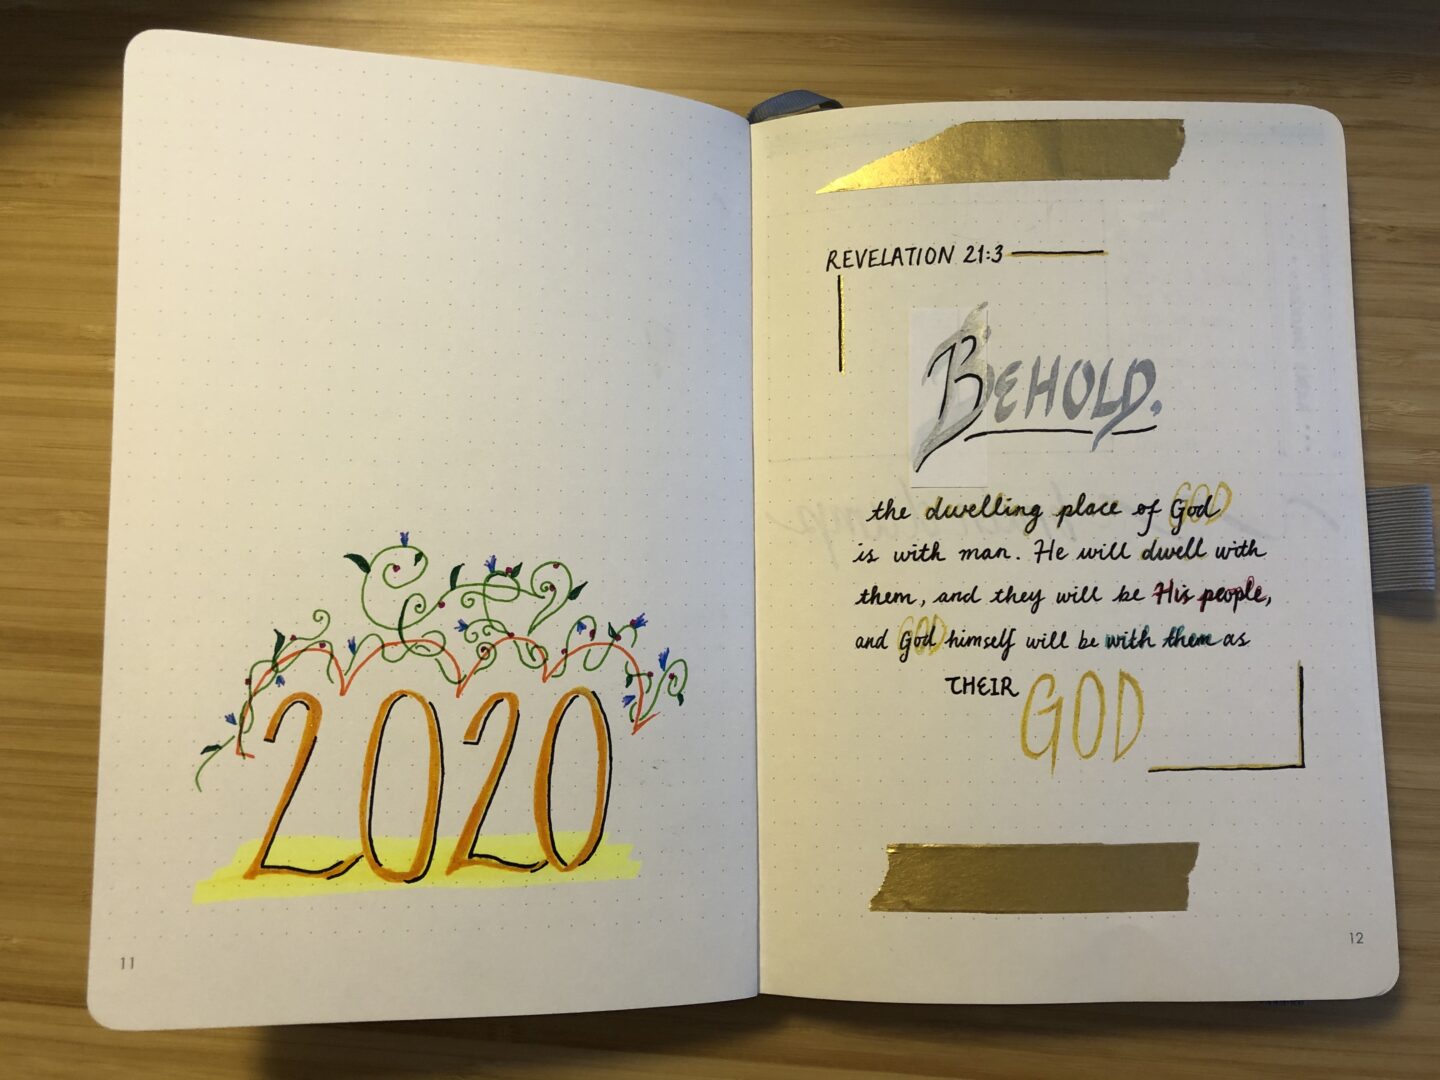 2020
11
REVELATION 21:3
BEHOLD.
the dwelling place of God
is with man. He will dwell with
them, and they will be His people,
and God himself will be with them as
THEIR GOD
12